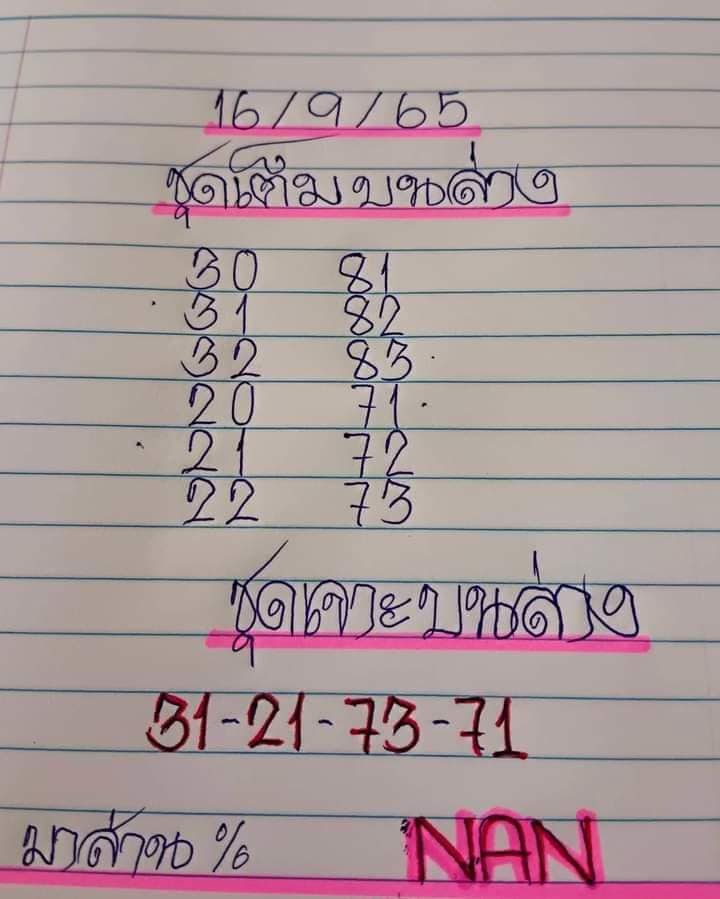 16/9/65
ชุดเต็มบนล่าง
30 81
31 82
32 83
20 71
21 72
22 73
ชุดเจาะบนล่าง
31-21-73-71
มาล้าน %
NAN